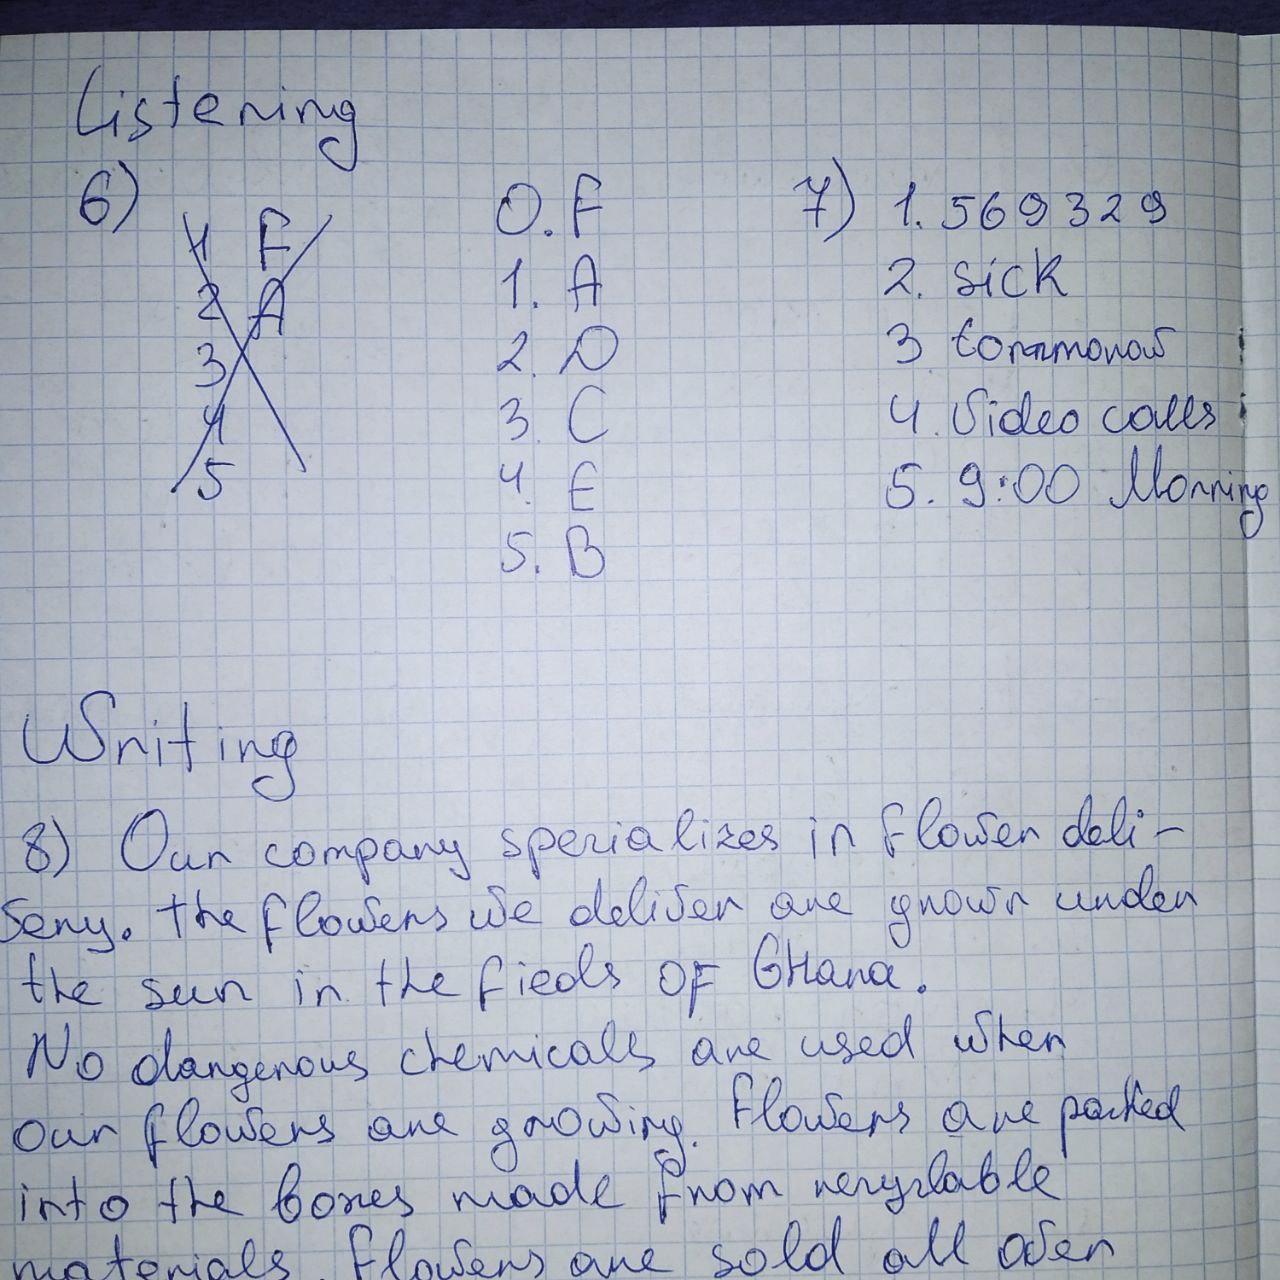 Listening
6)
1 F
2 A
3
4
5
0. F
1. A
2. D
3. C
4. E
5. B
7) 1. 569329
2. sick
3 tommorow
4. Video calls
5. 9:00 Morning
Writing
8) Our company specializes in flower deli-
very. The flowers we deliver are grown under
the sun in the fieds of Ghana.
No dangerous chemicals are used when
our flowers are growing. Flowers are packed
into the boxes made from recyclable
materials. Flowers are sold all over